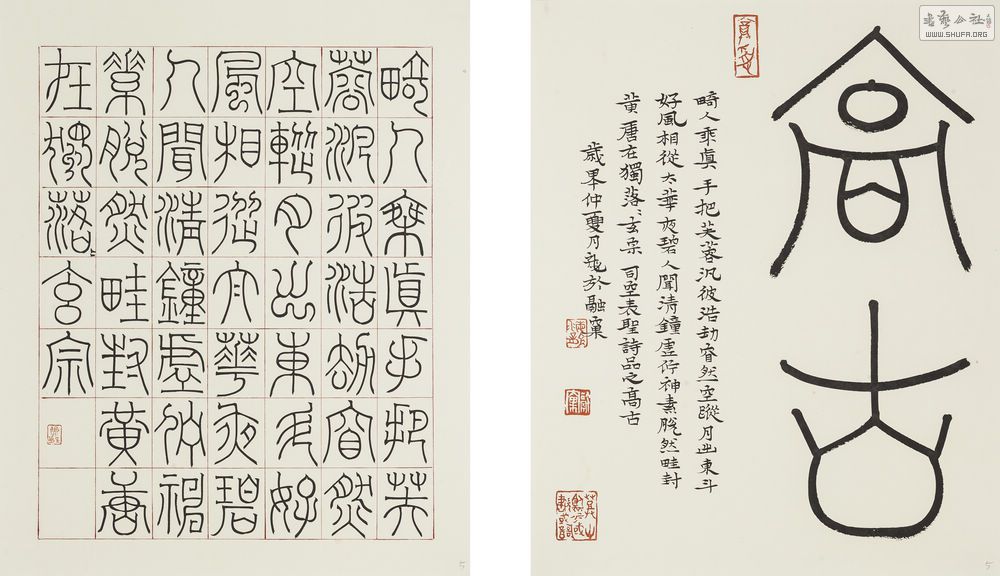 高古
畸人乘眞手把芙蓉汎彼浩劫窅然空蹤月出東斗
好風相從太華夜碧人聞清鐘虛佇神素脫然畦封
黃唐在獨落〻玄宗 司空表聖詩品之高古
仲夏月於融窠
畸人乘眞手把芙
蓉汎彼浩劫窅然
空蹤月出東斗好
風相從太華夜碧
人聞清鐘虛佇神
素脫然畦封黃唐
在獨落〻玄宗
5
5
書藝公社
WWW.SHUFA.ORG